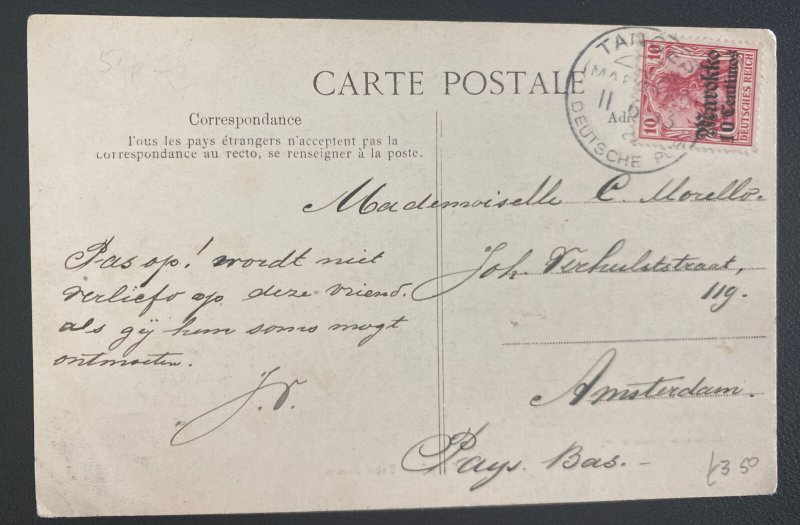 CARTE POSTALE
Correspondance
Tous les pays étrangers n'acceptent pas la
correspondance au recto, se renseigner à la poste.
TANGER
11
DEUTSCHE
10
10
Marokko
10 Centimos
DEUTSCHES REICH
Mademoiselle C. Morello.
Joh. Verhulststraat,
119.
Amsterdam.
Pays. Bas.-
Pas op! wordt niet
verliefd op deze vriend.
als gij hem soms mogt
ontmoeten.
J.V.
£3 50